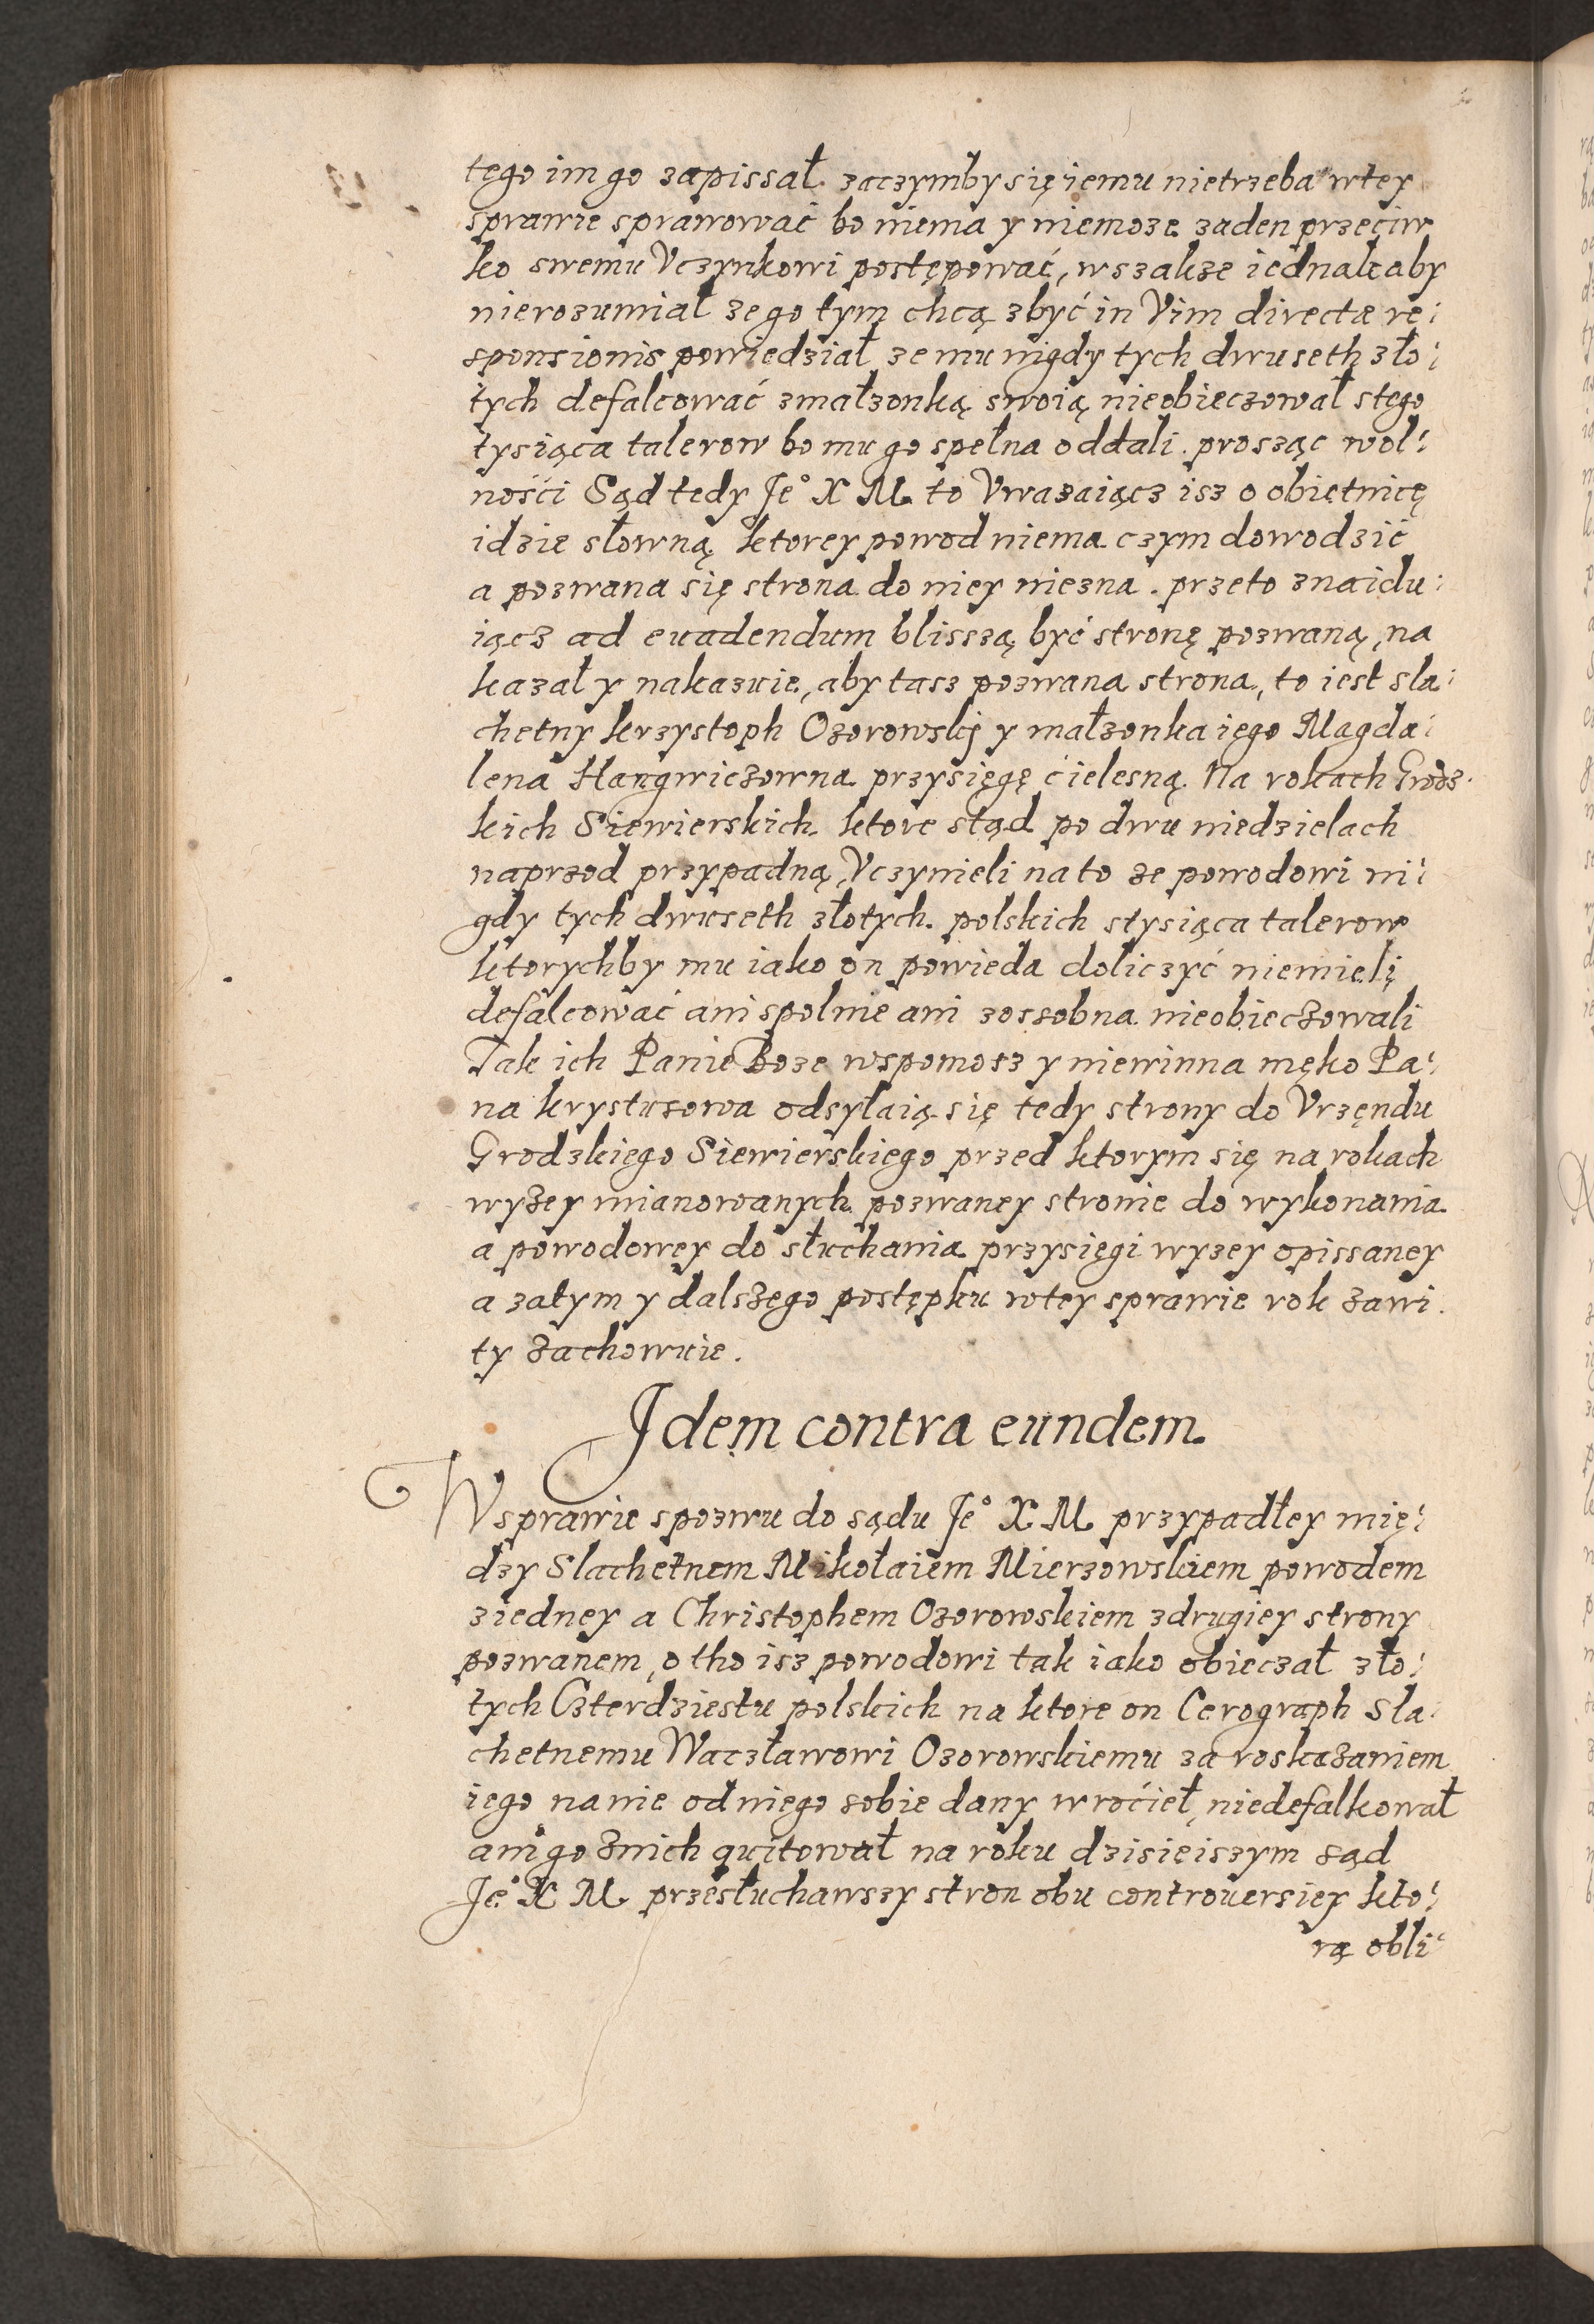 tego im go zapissał. zaczymby się iemu nietrzeba wtey
sprawie sprawować bo niema y niemoze zaden przeciw
ko swemu Vczynkowi postępować, wszakze iednak aby
nierozumiał ze go tym chcą zbyć in Vim directæ re:
sponsionis powiedział ze mu nigdy tych dwu seth zło:
tych defalcować zmałzonką swoią nieobieczował stego
tysiąca talerow bo mu go spełna oddali. prosząc wol:
ności Sąd tedy Je° X M to Vwazaiącz isz o obietnicę
idzie słowną ktorey powod niema czym dowodzić
a pozwana się strona do niey niezna. przeto znaidu:
iącz ad euadendum blisszą być stronę pozwaną, na
kazał y nakazuie, aby tasz pozwana strona, to iest sla:
chetny krzystoph Ozorowskj y małzonka iego Magda:
lena Hangwiczowna przysięgę cielesną. Na rokach Grodz:
kich Siewierskich ktore stąd po dwu niedzielach
naprzod przypadną, Vczynieli na to ze powodowi ni:
gdy tych dwuseth złotych polskich stysiąca talerow
ktorychby mu iako on powieda doliczyć niemieli
defalcować ani spolnie ani zossobna nieobieczowali
Tak ich Panie Boze wspomosz y niewinna męko Pa:
na krystusowa odsyłaią się tedy strony do Vrzęndu
Grodzkiego Siewierskiego przed ktorym się na rokach
wyzey mianowanych pozwaney stronie do wykonania
a powodowey do słuchania przysięgi wyzey opissaney
a zatym y dalszego postępku wtey sprawie rok zawi
ty zachowuie.
Jdem contra eundem.
W sprawie spozwu do sądu Je° X M przypadłey mię:
dzy Slachetnem Mikołaiem Mierzowskiem powodem
ziedney a Christophem Ozorowskiem zdrugiey strony
pozwanem, o tho isz powodowi tak iako obieczał zło:
tych Czterdziestu polskich na ktore on Cerograph Sla:
chetnemu Waczławowi Ozorowskiemu za roskazaniem
iego nanie od niego sobie dany wrocieł, niedefalkował
ani go znich quitował na roku dzisieiszym sąd
Je° X M przesłuchawszy stron obu controuersiey kto:
rą obli: